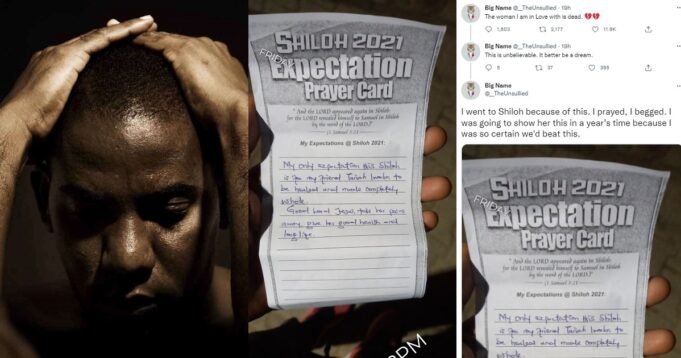 FRIDAY
SHILOH 2021
Expectation
Prayer Card
"And the LORD appeared again in Shiloh
for the LORD revealed himself to Samuel in Shiloh
by the word of the LORD."
(1 Samuel 3:21)
My Expectations @ Shiloh 2021:
My only expectation this Shiloh
is for my friend to
be healed and made completely
whole.
Good Lord Jesus, take her pains
away, give her good health and
long life.
PM
Big Name @__TheUnsullied · 19h
The woman I am in Love with is dead. 💔💔
1,803 2,177 11.8K
Big Name @__TheUnsullied · 19h
This is unbelievable. It better be a dream.
5 37 395
Big Name
@__TheUnsullied
I went to Shiloh because of this. I prayed, I begged. I
was going to show her this in a year's time because I
was so certain we'd beat this.
FRIDAY
SHILOH 2021
Expectation
Prayer Card
"And the LORD appeared again in Shiloh
for the LORD revealed himself to Samuel in Shiloh
by the word of the LORD."
(1 Samuel 3:21)
My Expectations @ Shiloh 2021:
My only expectation this Shiloh
is for my friend to
be healed and made completely